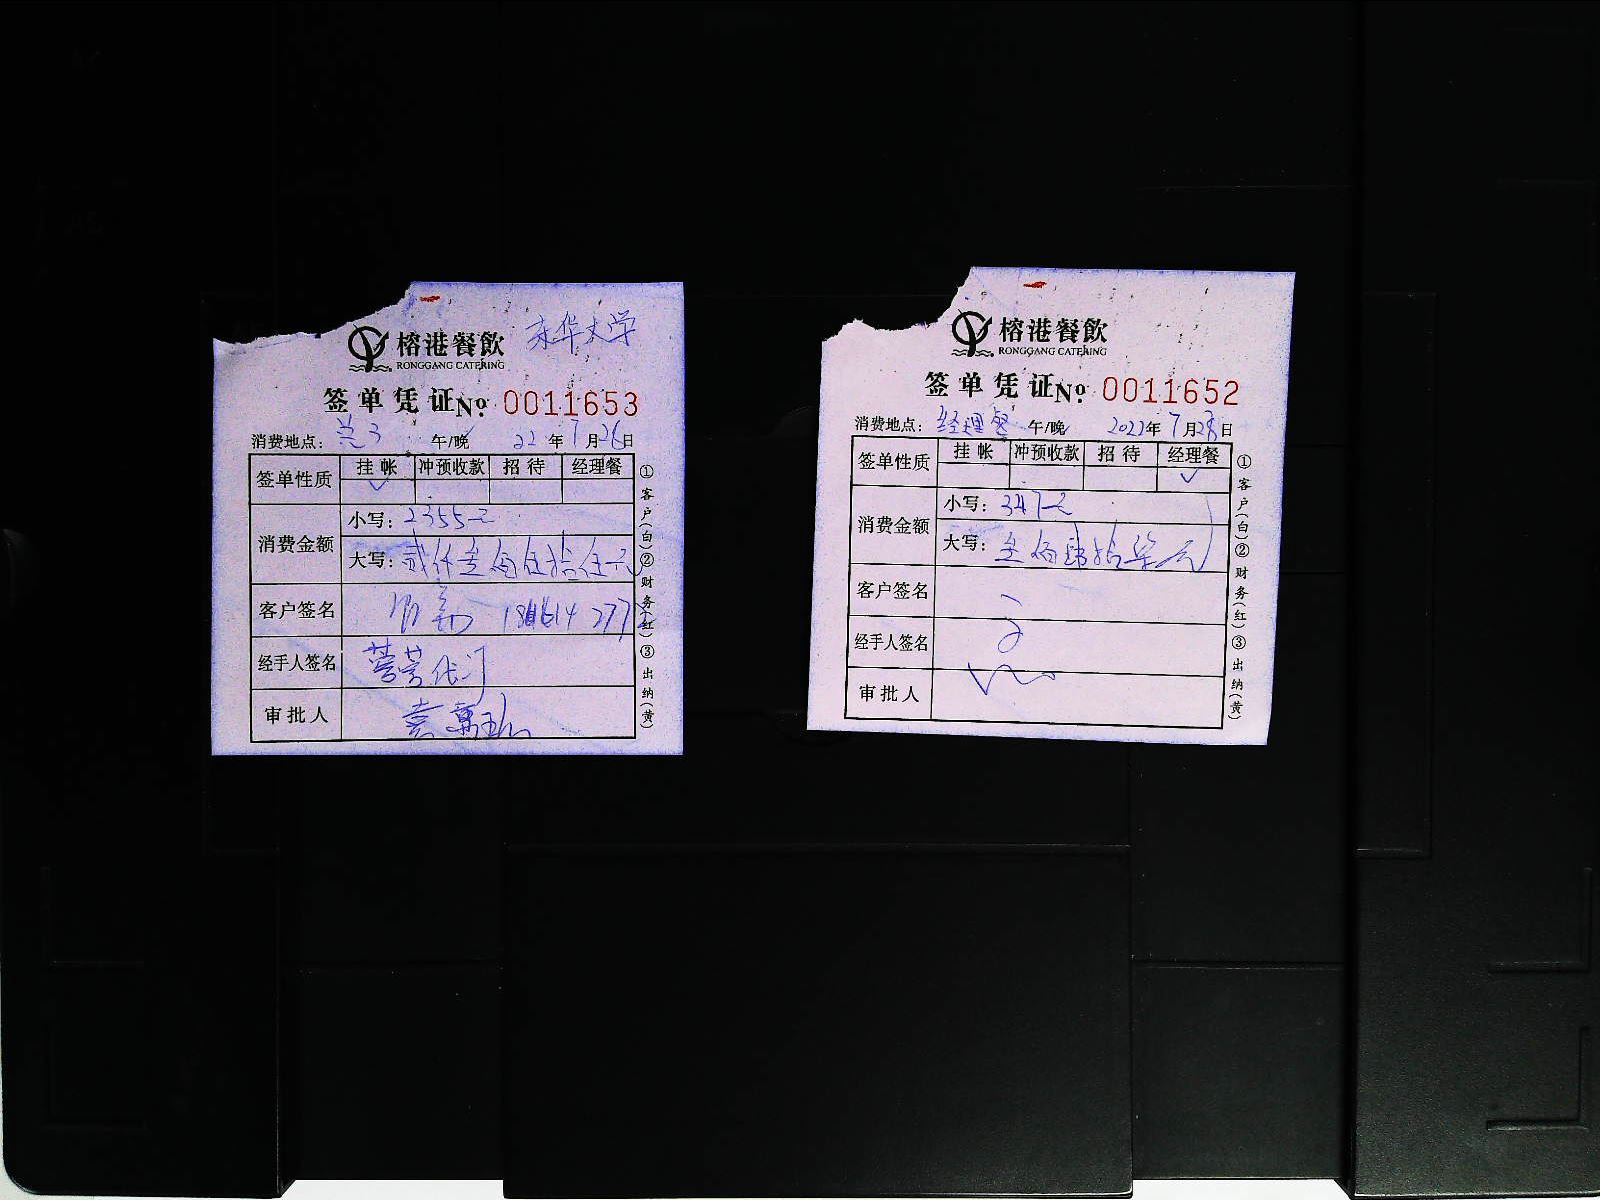 东华大学
榕港餐飲
RONGGANG CATERING
签单凭证 No: 0011653
消费地点: 兰3 午/晚 22年7月26日
签单性质 挂帐 冲预收款 招待 经理餐
✓
消费金额 小写: 2355元
大写: 贰仟叁佰伍拾伍元
客户签名
经手人签名
审批人
①客户(白)②财务(红)③出纳(黄)
榕港餐飲
RONGGANG CATERING
签单凭证 No: 0011652
消费地点: 经理餐 午/晚 2022年7月28日
签单性质 挂帐 冲预收款 招待 经理餐
✓
消费金额 小写: 347元
大写: 叁佰肆拾柒元
客户签名
经手人签名
审批人
①客户(白)②财务(红)③出纳(黄)